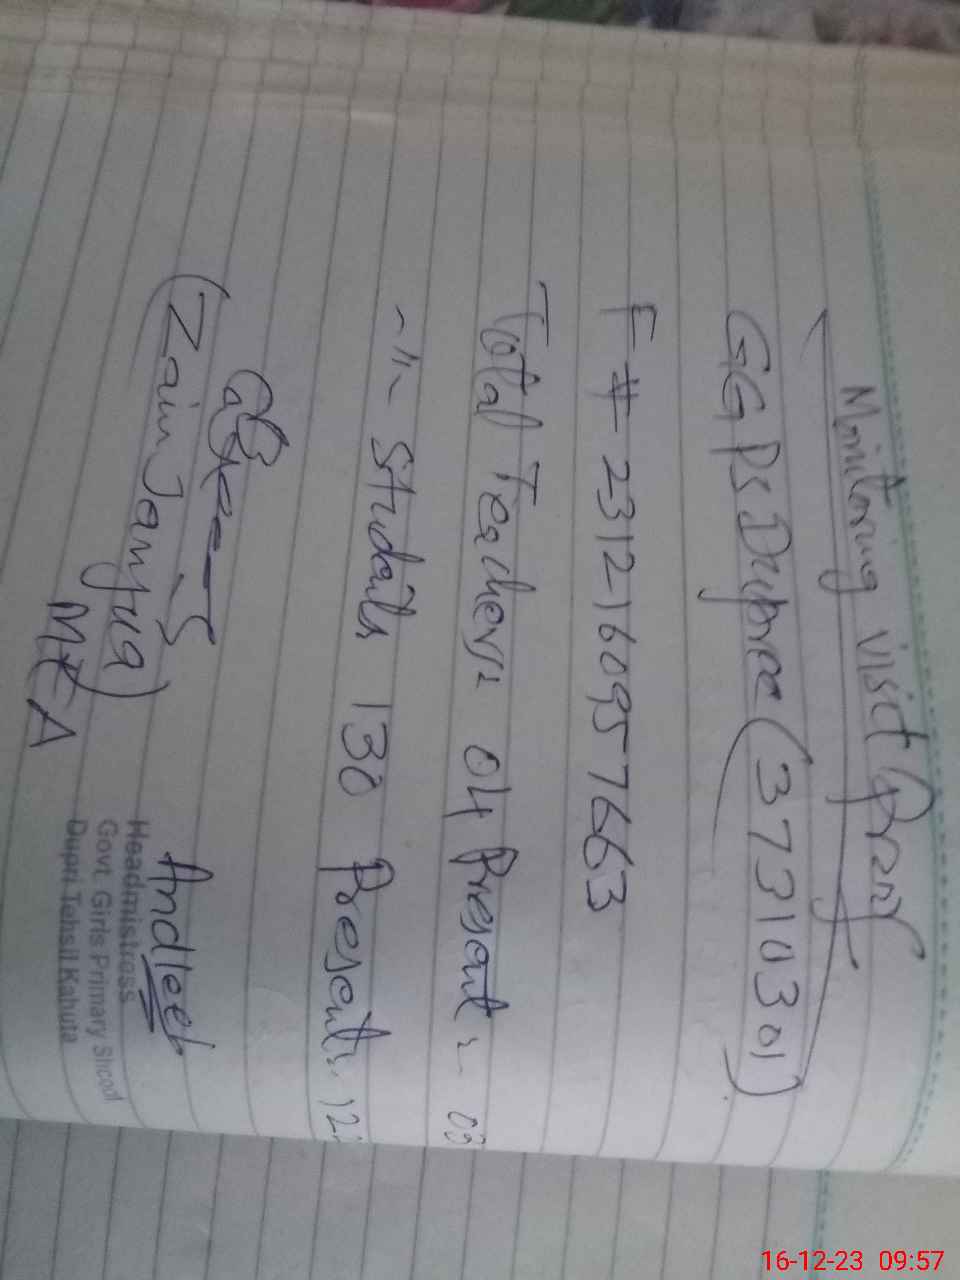 Monitoring visit
GGPS Dupree (37310301)
F # 231216095 7663
Total Teachers: 04 Present :- 03
-"- Students 130 Present:
(Zain Janjua)
MEA
Andleeb
Headmistress
Govt. Girls Primary Shcool
Dupri Tehsil Kahuta
16-12-23 09:57